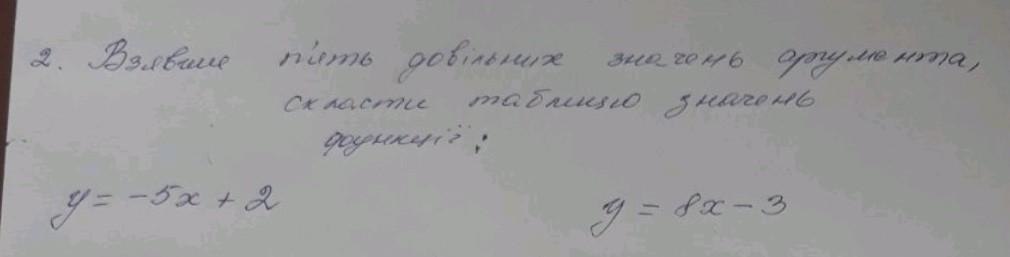 2. Взявши п'ять довільних значень аргумента,
скласти таблицю значень
функції:
y = -5x + 2 y = 8x - 3